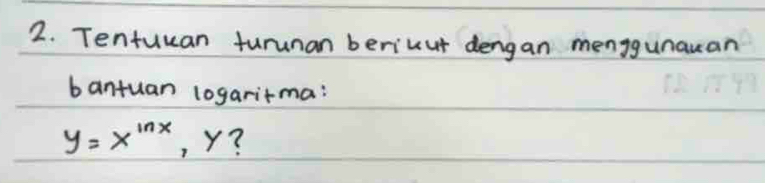 2. Tentukan turunan berikut dengan menggunakan
bantuan logaritma:
y = x^ln x, y?